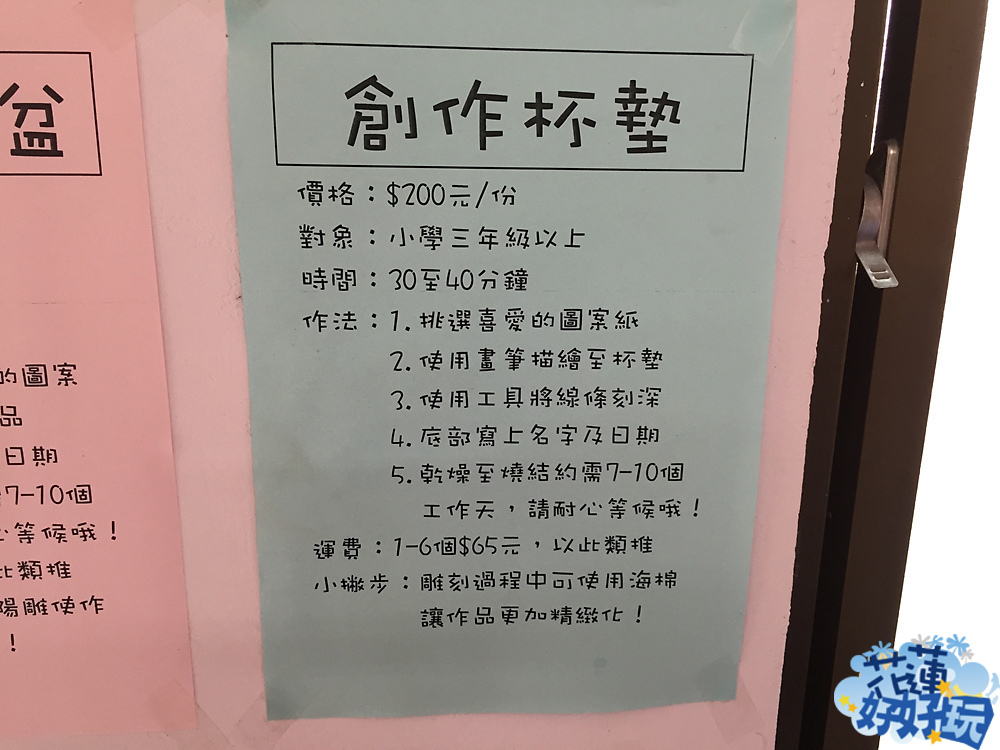 盆
的圖案
品
日期
7-10個
心等候哦！
此類推
陽雕使作
！
創作杯墊
價格：$200元/份
對象：小學三年級以上
時間：30至40分鐘
作法：1.挑選喜愛的圖案紙
2.使用畫筆描繪至杯墊
3.使用工具將線條刻深
4.底部寫上名字及日期
5.乾燥至燒結約需7-10個
工作天，請耐心等候哦！
運費：1-6個$65元，以此類推
小撇步：雕刻過程中可使用海棉
讓作品更加精緻化！
花蓮
好好玩